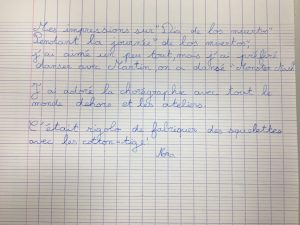 Mes impressions sur "Dia de los muertos"
Pendant la journée "de los muertos",
j'ai aimé un peu tout, mais j'ai préféré
danser avec Martin, on a dansé "Monster
J'ai adoré la chorégraphie avec tout le
monde dehors et les ateliers.
C'était rigolo de fabriquer des squelettes
avec les cotton-tige.